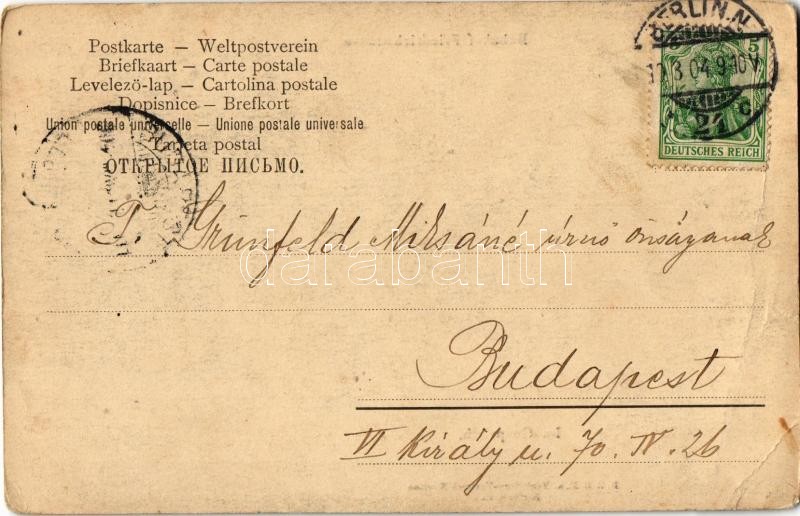 Postkarte — Weltpostverein
Briefkaart — Carte postale
Levelező-lap — Cartolina postale
Dopisnice — Brefkort
Union postale universelle — Unione postale universale
Tarjeta postal
ОТКРЫТОЕ ПИСЬМО.
BERLIN.N.
5
12.3 04.9-10V.
24 c
DEUTSCHES REICH
T. Grünfeld Miksáné úrnő önságának
darabanth
Budapest
VI Király u. 70. IV. 26